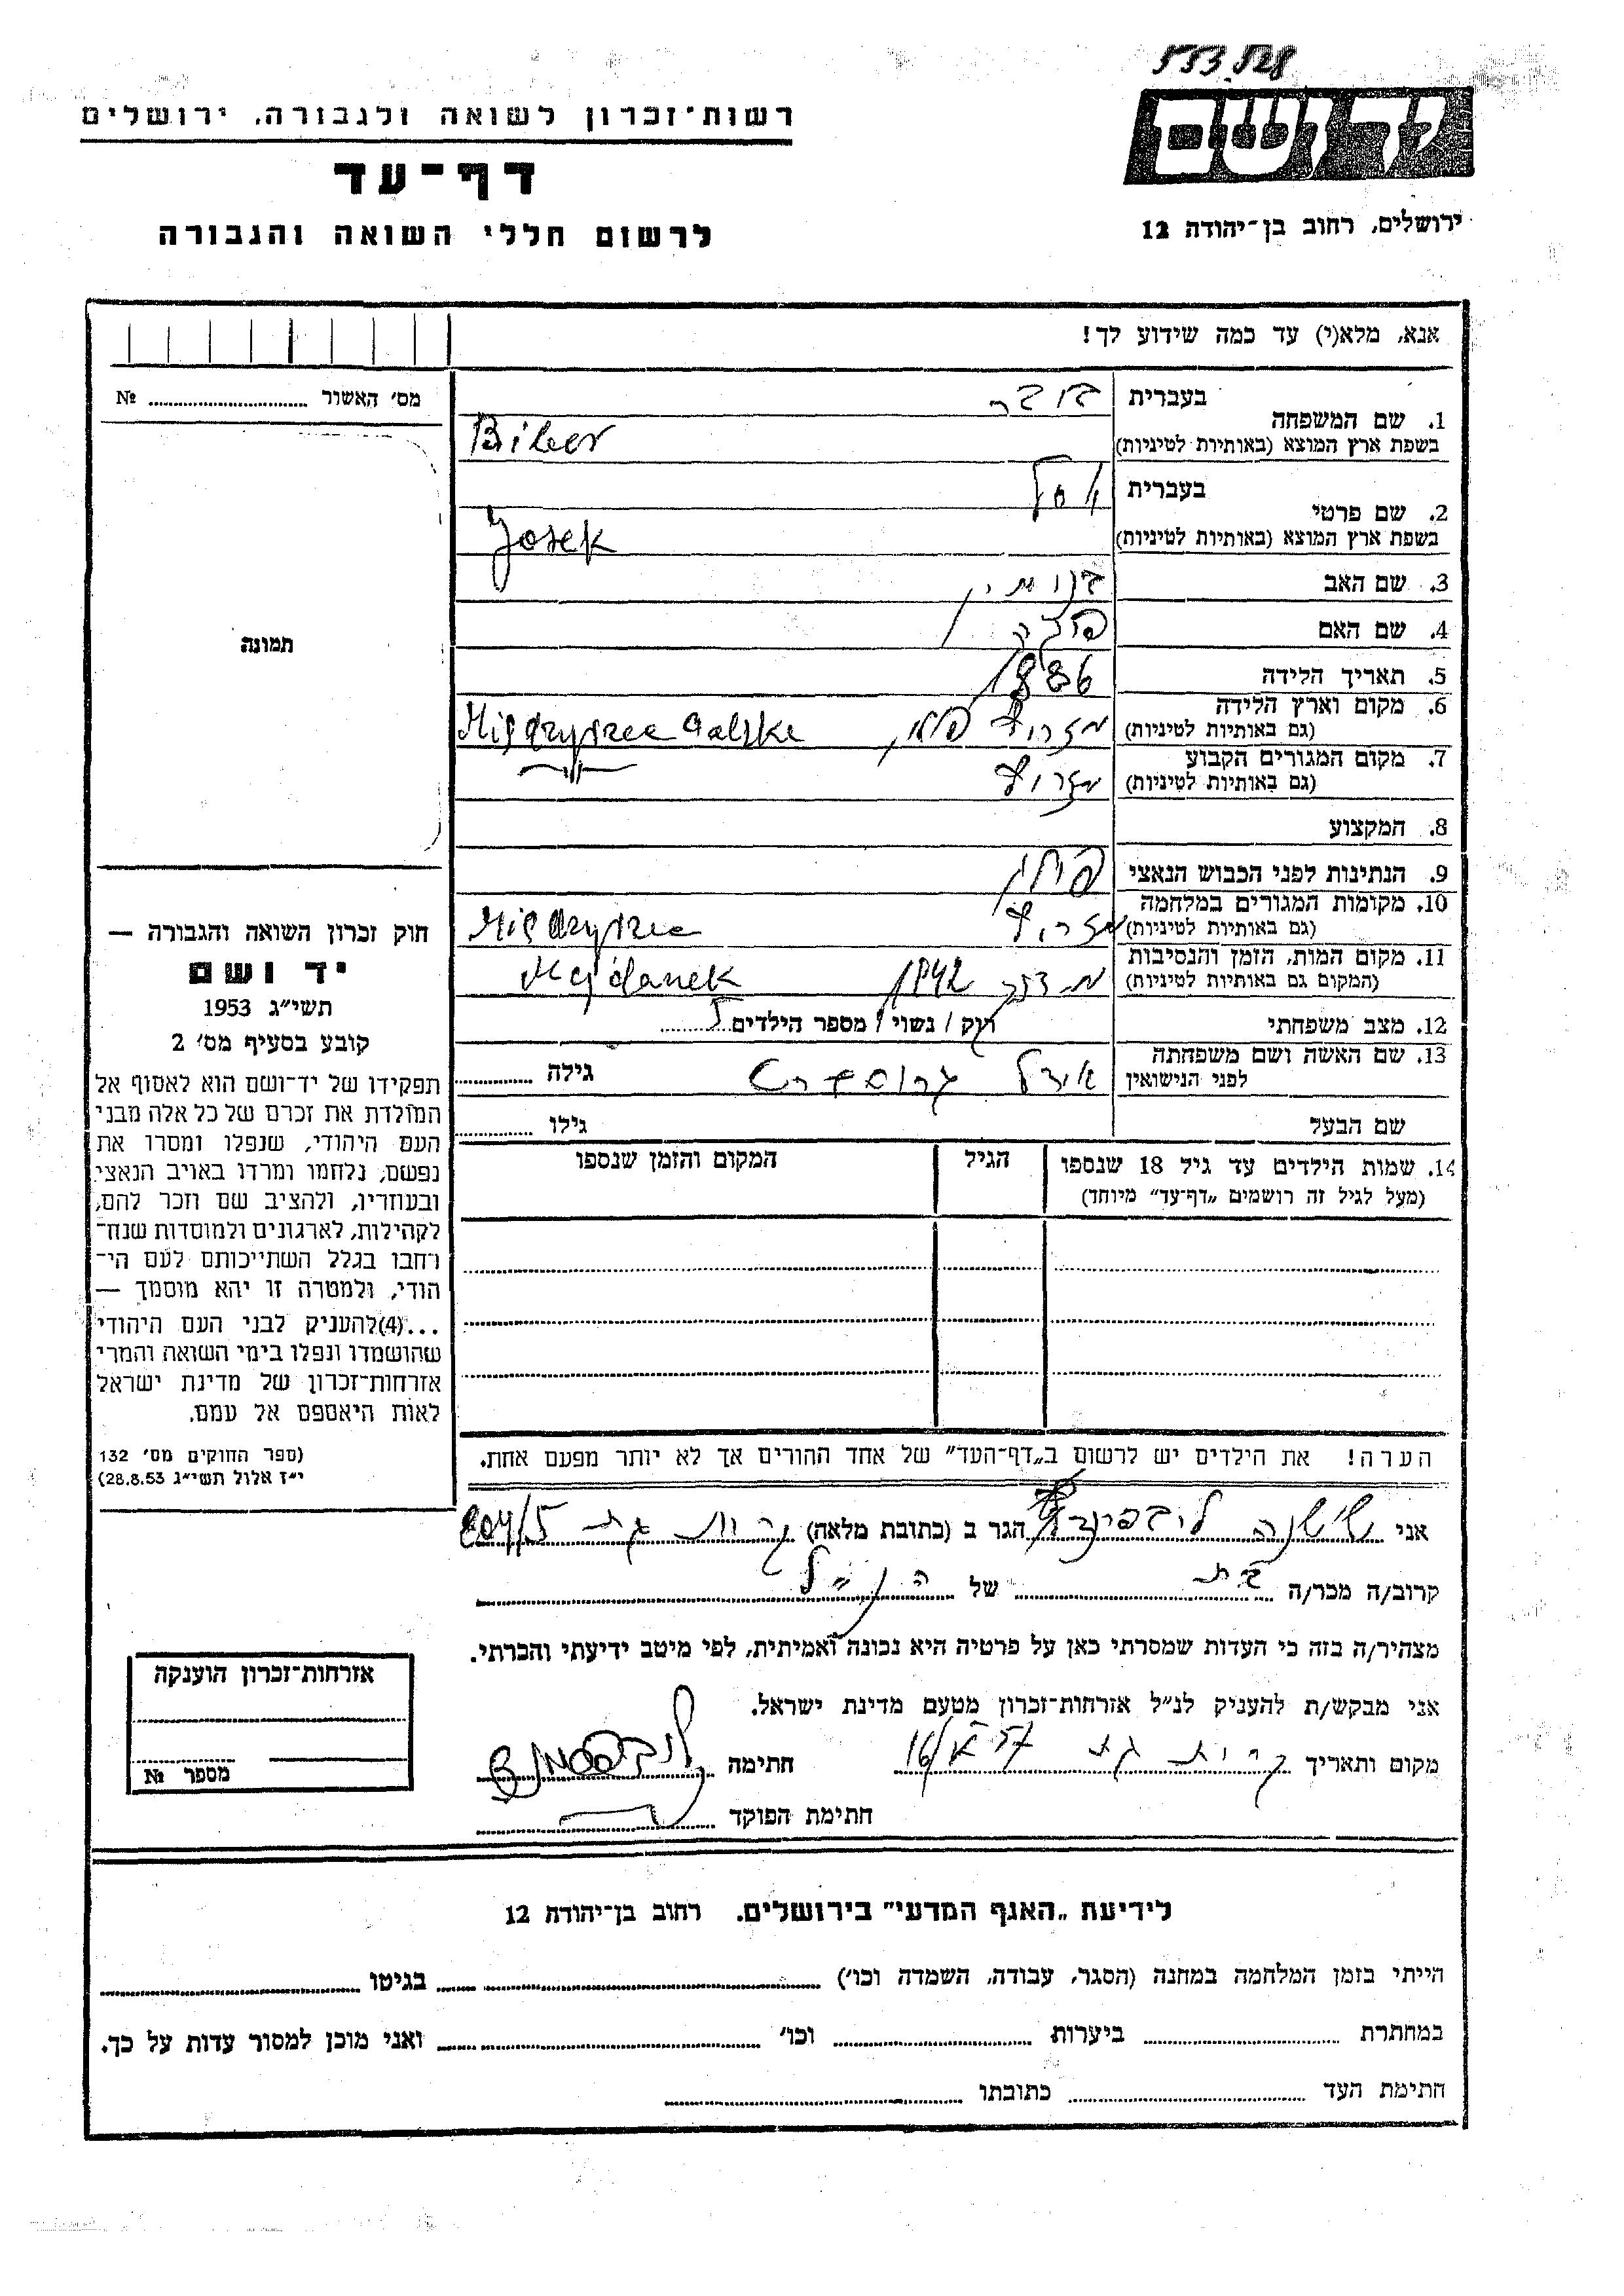 רשות־זכרון לשואה ולגבורה, ירושלים
דף־עד
לרשום חללי השואה והגבורה
יד ושם
ירושלים, רחוב בן־יהודה 12
אנא, מלא(י) עד כמה שידוע לך!
מס׳ האשור № ........
1. שם המשפחה
בעברית
בשפת ארץ המוצא (באותיות לטיניות) Biber
2. שם פרטי
בעברית
בשפת ארץ המוצא (באותיות לטיניות) Josek
3. שם האב בנימין
4. שם האם
5. תאריך הלידה 1886
6. מקום וארץ הלידה
(גם באותיות לטיניות)
7. מקום המגורים הקבוע
(גם באותיות לטיניות)
8. המקצוע
9. הנתינות לפני הכבוש הנאצי
10. מקומות המגורים במלחמה
(גם באותיות לטיניות)
11. מקום המות, הזמן והנסיבות 1942 Majdanek
(המקום גם באותיות לטיניות)
12. מצב משפחתי רוק / נשוי / מספר הילדים 5
13. שם האשה ושם משפחתה
לפני הנישואין גילה
שם הבעל גילו
14. שמות הילדים עד גיל 18 שנספו הגיל המקום והזמן שנספו
(מעל לגיל זה רושמים „דף־עד״ מיוחד)
הערה! את הילדים יש לרשום ב„דף־העד״ של אחד ההורים אך לא יותר מפעם אחת.
תמונה
חוק זכרון השואה והגבורה —
יד ושם
תשי״ג 1953
קובע בסעיף מס׳ 2
תפקידו של יד־ושם הוא לאסוף אל
המולדת את זכרם של כל אלה מבני
העם היהודי, שנפלו ומסרו את
נפשם, נלחמו ומרדו באויב הנאצי
ובעוזריו, ולהציב שם וזכר להם,
לקהילות, לארגונים ולמוסדות שנח־
רחבו בגלל השתייכותם לעם הי־
הודי, ולמטרה זו יהא מוסמך —
...(4)להעניק לבני העם היהודי
שהושמדו ונפלו בימי השואה והמרי
אזרחות־זכרון של מדינת ישראל
לאות היאספם אל עמם.
(ספר החוקים מס׳ 132
י״ז אלול תשי״ג 28.8.53)
אני שושנה הגר ב (כתובת מלאה) קרית גת 204/5
קרוב/ה מכר/ה בת של הנ״ל
מצהיר/ה בזה כי העדות שמסרתי כאן על פרטיה היא נכונה ואמיתית, לפי מיטב ידיעתי והכרתי.
אני מבקש/ת להעניק לנ״ל אזרחות־זכרון מטעם מדינת ישראל.
מקום ותאריך קרית גת חתימה
חתימת הפוקד
אזרחות־זכרון הוענקה
מספר №
לידיעת „האגף המדעי״ בירושלים, רחוב בן־יהודה 12
הייתי בזמן המלחמה במחנה (הסגר, עבודה, השמדה וכו׳) בגיטו
במחתרת ביערות וכו׳ ואני מוכן למסור עדות על כך.
חתימת העד כתובתו